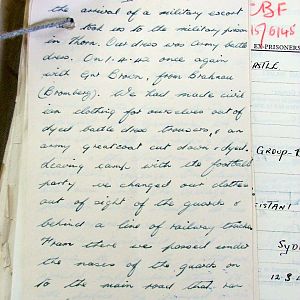 the arrival of a military escort
took us to the military prison
in Thorn. Our dress was army battle
dress. On 1.4.42 once again
with Gnr Brown, from Brahnau
(Bromberg). We had made civil-
ian clothing for ourselves out of
dyed battle dress trousers, & an
army greatcoat cut down & dyed.
Leaving camp with the football
party we changed our clothes
out of sight of the guards &
behind a line of railway trucks
From there we passed under
the noses of the guards on
to the main road that ran
CBF
15/6/45
EX-PRISONERS
GROUP-
12.3.